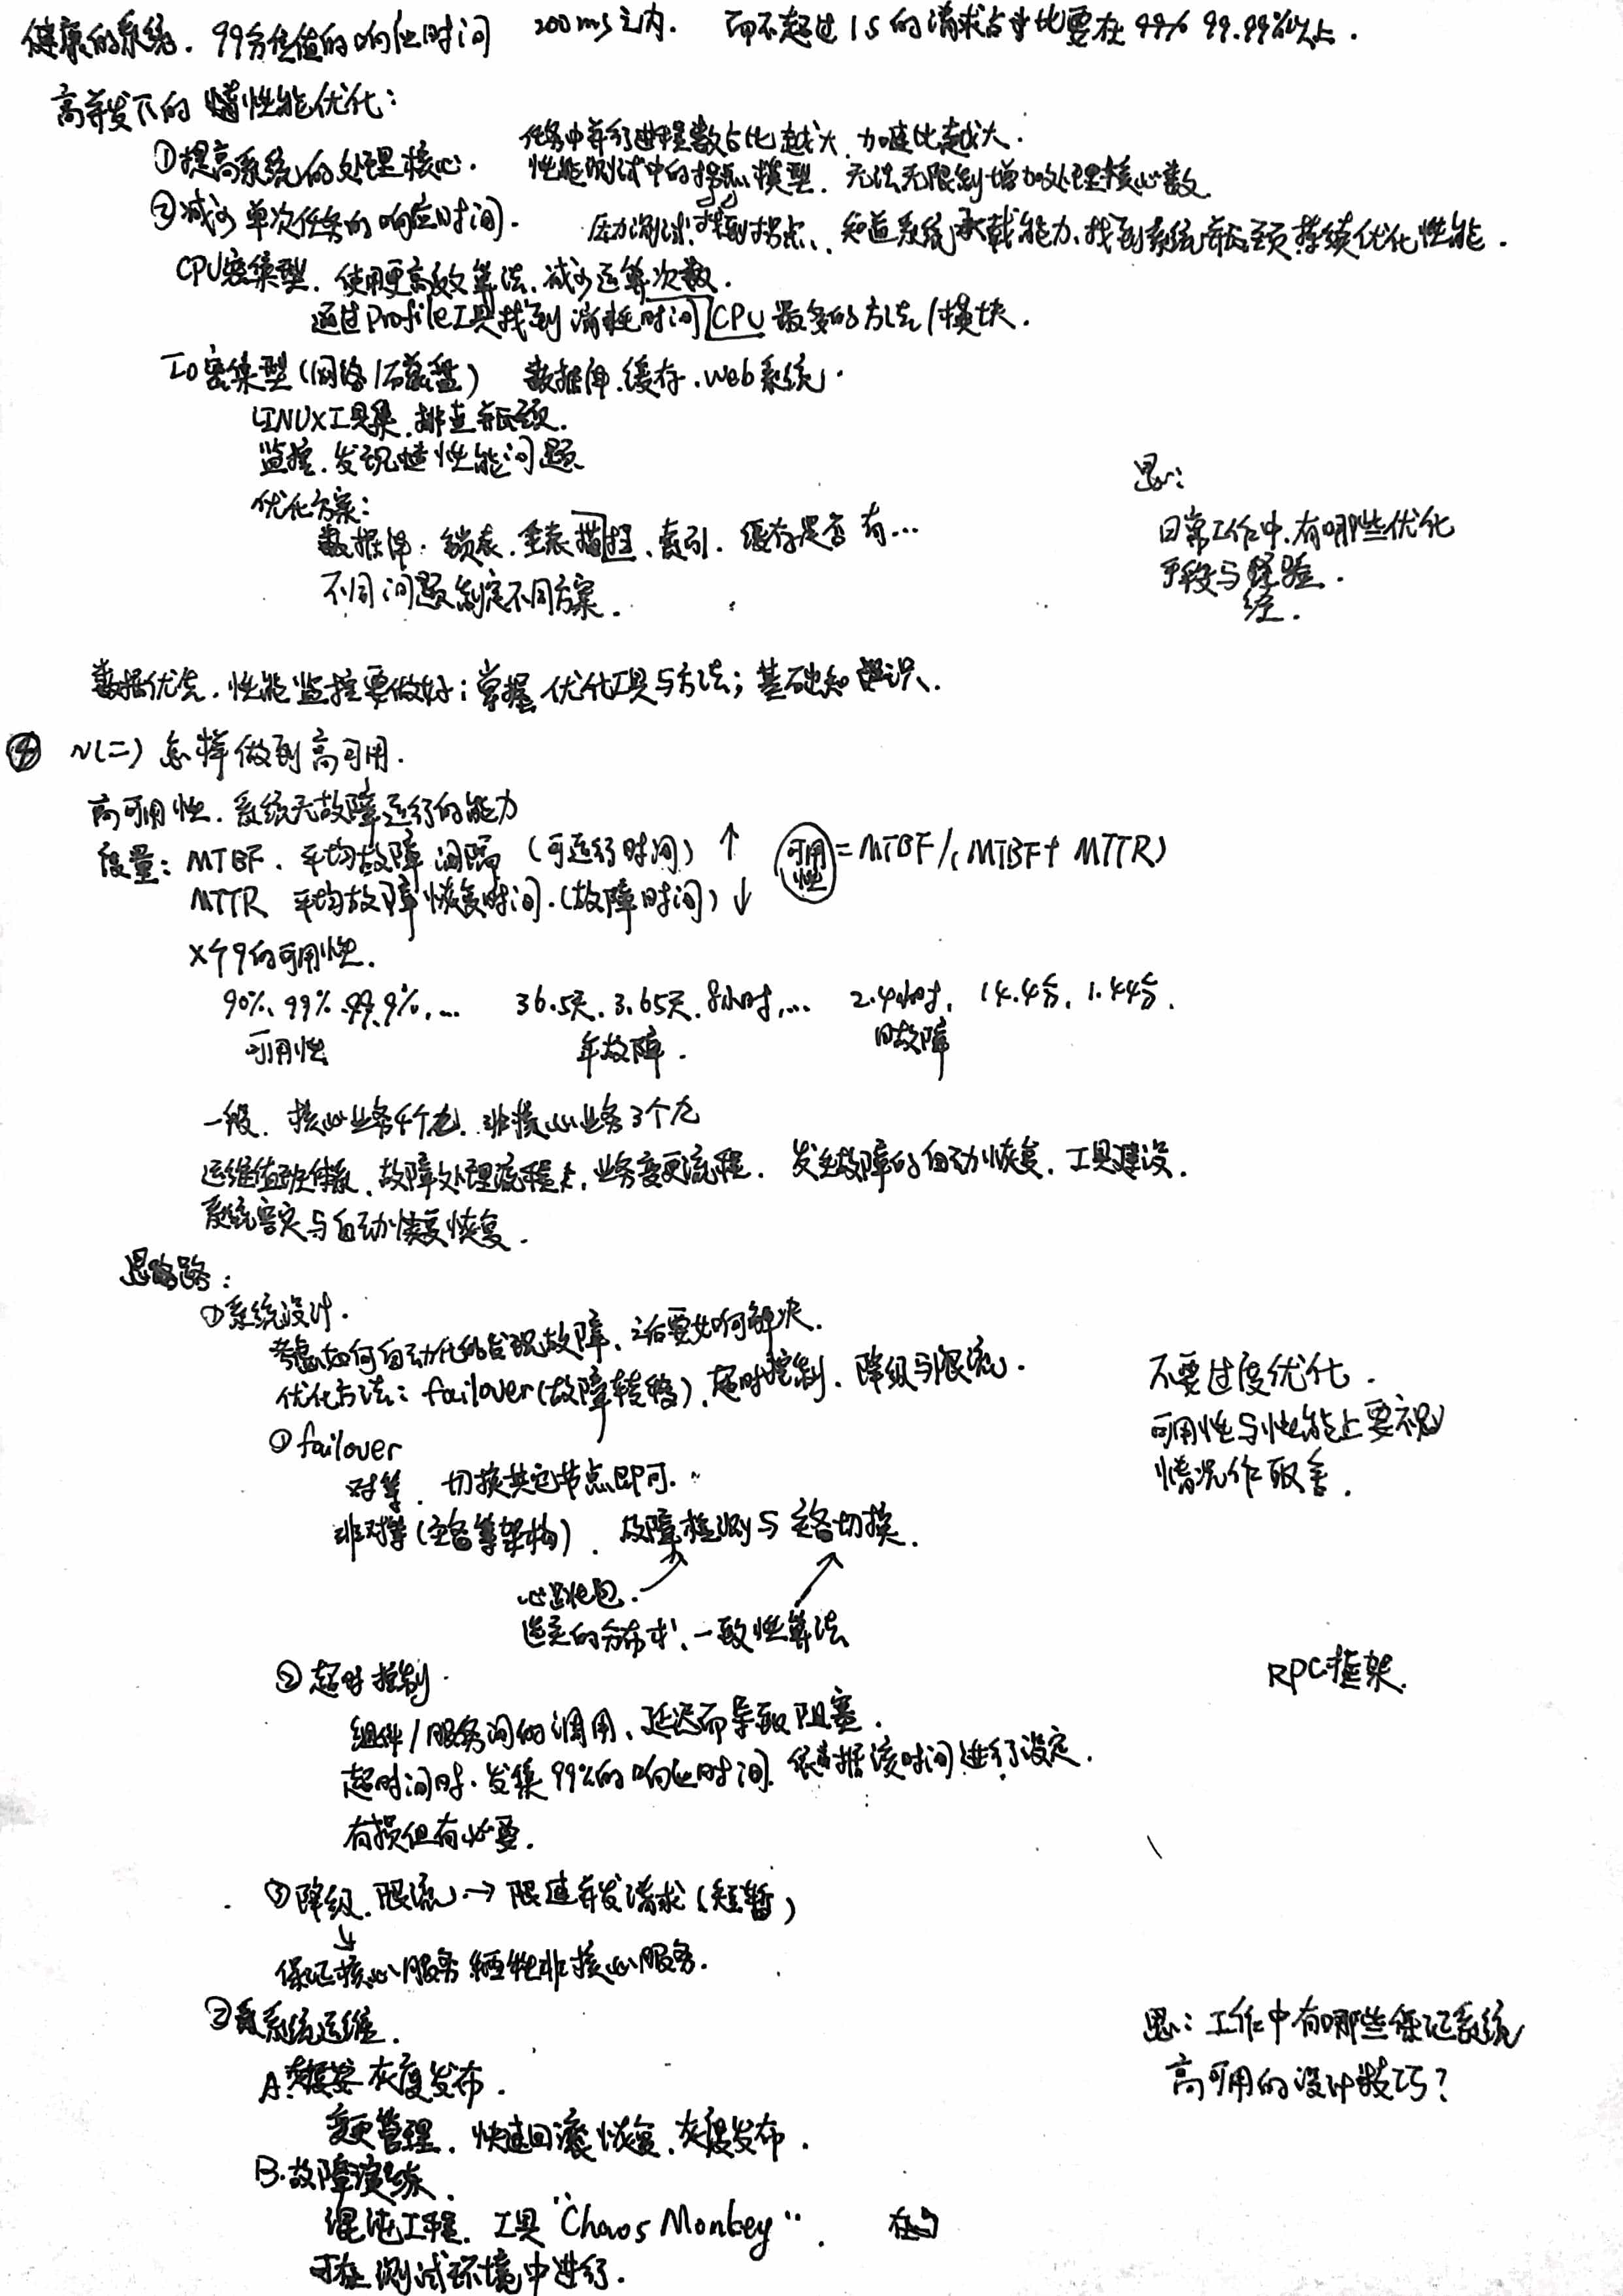 健康的系统. 99分位值的响应时间 200ms之内. 而不超过1s的请求占比要在 99.99%以上.
高并发下的性能优化:
①提高系统的处理核心. 任务中并行进程数占比越大, 加速比越大.
性能测试中的拐点模型. 无法无限制增加处理核心数
②减少单次任务的响应时间. 压力测试, 找到拐点、知道系统承载能力、找到系统瓶颈, 持续优化性能.
CPU密集型. 使用更高效算法. 减少运算次数.
通过Profile工具找到消耗时间CPU最多的方法/模块.
IO密集型(网络/磁盘) 数据库.缓存.web系统.
LINUX工具集.排查瓶颈.
监控.发现性能问题
优化方案:
数据库. 锁表. 全表扫描、索引. 缓存是否有...
不同问题制定不同方案.
思:
日常工作中.有哪些优化
手段与经验.
经.
数据优先. 性能监控要做好; 掌握优化工具与方法; 基础知识.
④ ~(二) 怎样做到高可用.
高可用性. 系统无故障运行的能力
度量: MTBF. 平均故障间隔 (可运行时间) ↑ 可用性 = MTBF/(MTBF+MTTR)
MTTR 平均故障恢复时间.(故障时间) ↓
X个9的可用性.
90%.99%.99.9%.... 36.5天.3.65天.8小时,... 2.4小时, 14.4分, 1.44分.
可用性 年故障. 日故障
一般. 核心业务4个九. 非核心业务3个九
运维值班体系、故障处理流程、业务变更流程. 发生故障的自动恢复、工具建设.
系统容灾与自动恢复.
思路:
①系统设计.
考虑如何自动化的发现故障、之后要如何解决.
优化方法: failover(故障转移)、超时控制、降级与限流.
①failover
对等. 切换其它节点即可.
非对等(主备等架构). 故障检测与主备切换.
心跳包.
选主的分布式、一致性算法
不要过度优化.
可用性与性能上要视
情况作取舍.
②超时控制.
组件/服务间的调用、延迟而导致阻塞.
超时间时.发集99%的响应时间. 依据该时间进行设定.
有损但有必要.
RPC框架.
③降级.限流 → 限速并发请求(短暂)
↓
保证核心服务牺牲非核心服务.
②系统运维.
A.灰度发布.
变更管理. 快速回滚恢复.灰度发布.
B.故障演练.
混沌工程. 工具“Chaos Monkey”.
可在测试环境中进行.
思: 工作中有哪些保证系统
高可用的设计技巧?